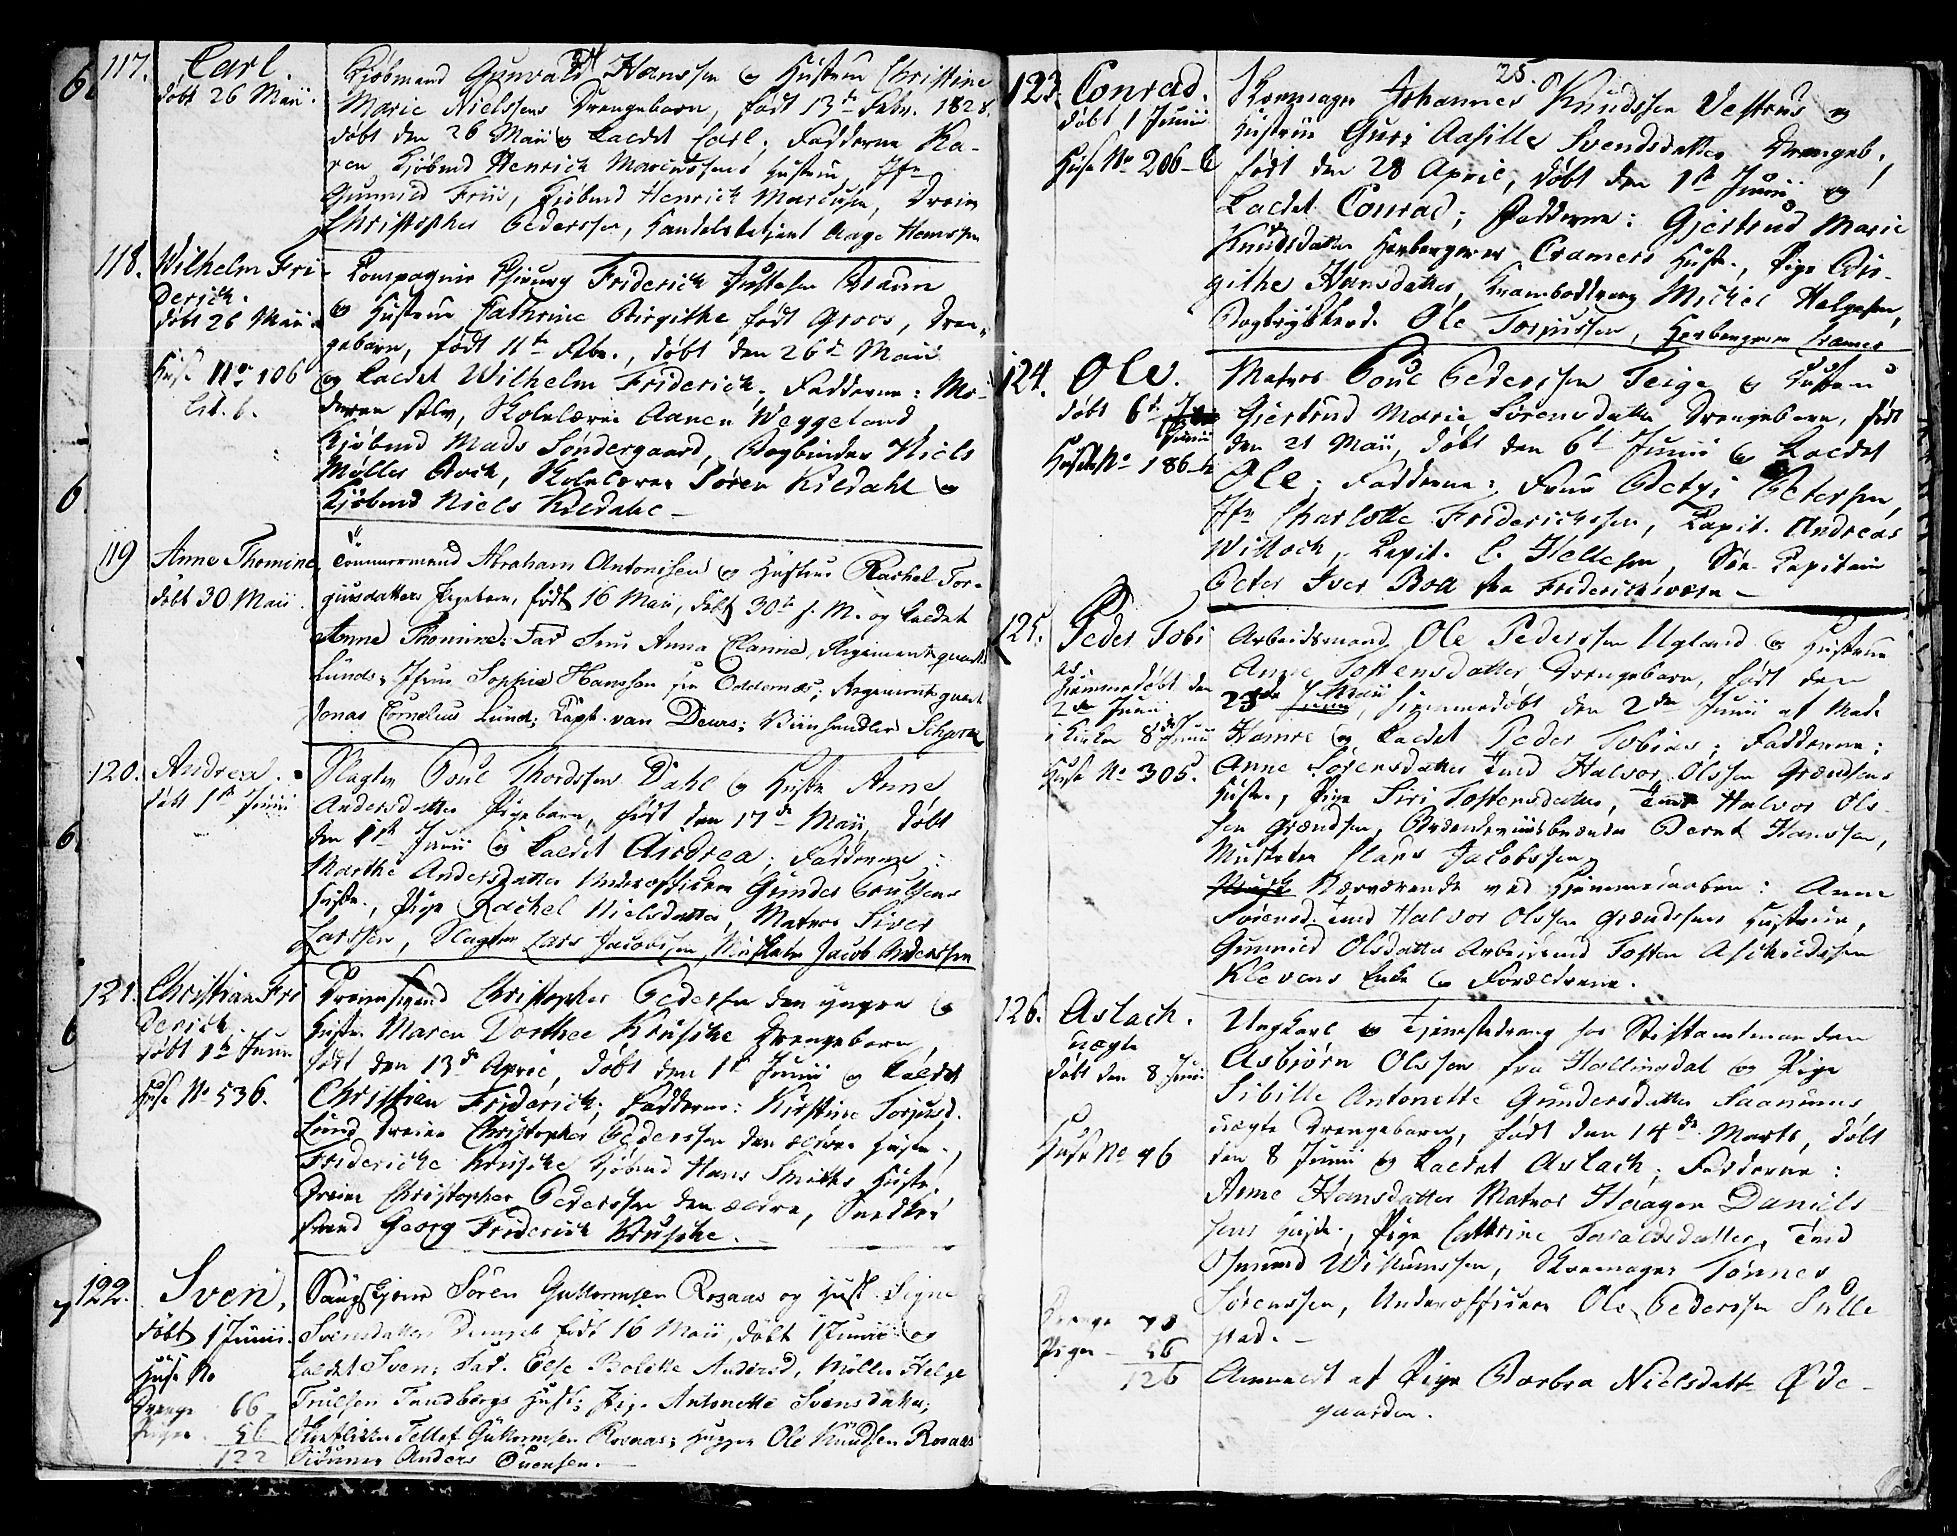 117. Carl.
døbt 26 Maii.
Kjøbmand Gunvald Hanssen og Hustru Christine
Marie Nielssens Drengebarn, født 13de Febr. 1828.
døbt den 26 Maii og kaldt Carl; Fadderne Ka-
ren Kjøbmd Henrich Marcussens Hustru, Jfr
Gunnild Friis, Kjøbmd Henrich Marcussen, Dreier
Christopher Pederssen, Handelsbetjent Aage Hanssen
118. Wilhelm Fri
derich.
døbt 26 Maii
Huse No 106
Lit. b.
Compagnie Chirurg Friderich Justesen Braun
og Hustrue Cathrine Birgithe født Groos, Dren-
gebarn, født 11te Febr., døbt den 26de Maii
og kaldt Wilhelm Friderich. Fadderne: Mo-
deren selv, Skolelærer Aanen Weggeland
Kjøbmd Mads Søndergaard, Bogbinder Niels
Møller Bock, Skolelærer Søren Kildahl og
Kjøbmd Niels Kildahl –
119 Anne Thomine
døbt 30 Maii
Tømmermand Abraham Antonisen og Hustrue Rachel Tor-
gusdatters Pigebarn, født 16 Maii, døbt 30te s. M. og kaldet
Anne Thomine: Fad
Lunds; Jfru Sophie Hanssen fra Oddernæs; Regiments qvart
Jonas Cornelius Lund; Capt. van Deurs; Viinhandler
120. Andrea.
døbt 1te Junii
Slagter Poul Thordssen Dahl og Hustr Anne
Andersdatter Pigebarn, født den 17de Maii, døbt
den 1ste Junii og kaldt Andrea; Fadderne:
Marthe Andersdatter Underofficeer Gunder Poulsens
Hustr., Pige Rachel Nielsdatter, Matros Siver
Larssen, Slagter Lars Jacobssen, Musketer Jacob Anderssen
121. Christian Fri
derich.
døbt 1te Junii
Huse No 536.
Dreiersvend Christopher Pedersen den yngre og
Hustr. Maren Dorthea Krüschke Drengebarn,
født den 13de April, døbt den 1te Junii og kaldet
Christian Friderich; Fadderne: Kirstine Torjusd.
Lund Dreier Christopher Pederssen den ældres Hustr.,
Frideriche Krüschke Kjøbmd Hans Smiths Hustr.
Dreier Christopher Pederssen den ældre, Snedker
svend Georg Friderich Krüschke.
122. Sven,
døbt 1 Junii.
Huse No
Drenge 66
Piger. 56
122
Søren Guttormsen Rosaas og Hust. Signe
Svensdatters Drengeb født 16 Maii, døbt 1 Junii og
kaldet Sven; Fad. Else Bolette Andersd, Møller Helge
Truelsen Tandbergs Hust; Pige Antonette Svensdatter;
Tellef Guttormsen Rosaas; Ole Knudsen Rosaas
Anders Svensen. –
25.
123. Conrad.
døbt 1 Junii
Huse No 206-b
Skomager Johannes Knudssen Vestnes og
Hustrue Guri Aasille Svendsdatter Drengeb.,
født den 28 April, døbt den 1te Junii og
kaldet Conrad; Fadderne: Gjertrud Marie
Knudsdatter Herbergerer Cramers Hustr., Pige Bir-
githe Hansdatter, Michel Helgesen,
Ole Torjussen, Herbergerer Cramer
124. Ole.
døbt 6te
Junii
Huse No 186-b
Matros Poul Pederssen Teige og Hustrue
Gjertrud Marie Sørensdatter Drengebarn, født
den 21 Maii, døbt den 6te Junii og kaldet
Ole; Fadderne: Frue Betzi Petersen,
Jfr Charlotte Friderichssen, Capit. Andreas
Wittoch, Capit. C. Hellesen, Søe Capitain
Peter Iver Boll fra Friderichsværn –
125. Peder Tobi
as.
Hjemmedøbt den
2de Junii
i Kirken 8de Junii
Huse No 305.
Arbeidsmand Ole Pederssen Ugland og Hustrue
Anne Tostensdatter Drengebarn, født den
23de Maii, hjemmedøbt den 2den Junii af Mad.
Hamre og kaldet Peder Tobias; Fadderne:
Anne Sørensdatter Tmd Halvor Olssen Grændsens
Hustr., Pige Siri Tostensdatter, Tmd Halvor Ols
sen Grændsen, Bernt Hanssen,
Musketer Hans Jacobssen
Nærværende ved Hjemmedaaben: Anne
Sørensd. Tmd Halvor Olssen Grændssens Hustrue,
Gunnild Olsdatter Arbeidsmd Tosten
Klevens Enke og Forældrene.
126. Aslach.
uægte
døbt den 8 Junii
Huse No 96
Drenge 70
Piger – 56
126
Ungkarl og Tjenestedreng hos Stiftamtmanden
Asbjørn Olssen fra Hallingdal og Pige
Sibille Antonette Gundersdatter Saanums
uægte Drengebarn, født den 14de Marts, døbt
den 8 Junii og kaldet Aslach; Fadderne:
Anne Hansdatter Matros Haagen Daniels
sens Hustr., Pige Cathrine Taraldsdatter, Tmd
Osmund Willumssen, Skomager Tønnes
Sørenssen, Underofficeer Ole Pederssen Sille
stad. –
Anmeldt af Pige Barbra Nielsdatter Øde-
gaarden.